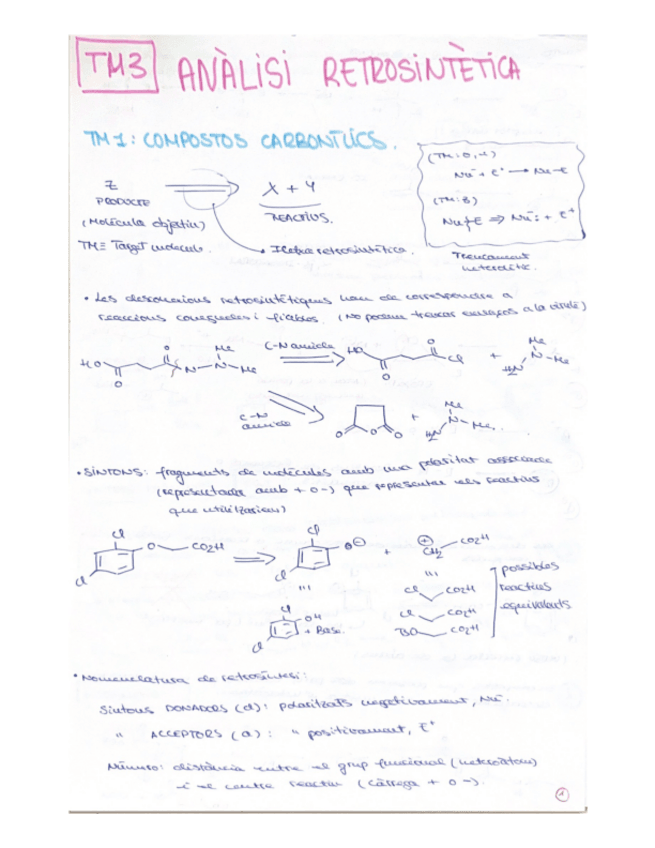 TM3 ANÀLISI RETROSINTÈTICA
TM1: COMPOSTOS CARBONÍLICS.
Z
PRODUCTE
(Molècula objectiu)
TM ≡ Target molecule.
X + Y
REACTIUS.
Fletxa retrosintètica.
Nu⁻ + E⁺ → Nu-E
Nu-E ⇒ Nu⁻: + E⁺
Trencament
heterolític.
• Les desconexions retrosintètiques han de correspondre a
reaccions conegudes i fiables. (No podem trencar enllaços a la babalà)
HO O O N N Me Me
C-N amida
HO O O Cl + H₂N N Me Me
C-N
amida
O O O + H₂N N Me Me
• SINTONS: fragments de molècules amb una polaritat associada
(representada amb + o -) que representen els reactius
que utilitzaríem)
Cl Cl O CO₂H ⇒ Cl Cl O⊖ + ⊕CH₂ CO₂H
Cl Cl OH + Base.
Cl CO₂H
Cl CO₂H
CO₂H
possibles
reactius
equivalents
• Nomenclatura de retrosíntesi:
Sintons DONADORS (d): polaritzats negativament, Nu⁻.
" ACCEPTORS (a): " positivament, E⁺
Número: distància entre el grup funcional (heteroàtom)
i el centre reactiu (càrrega + o -).
1